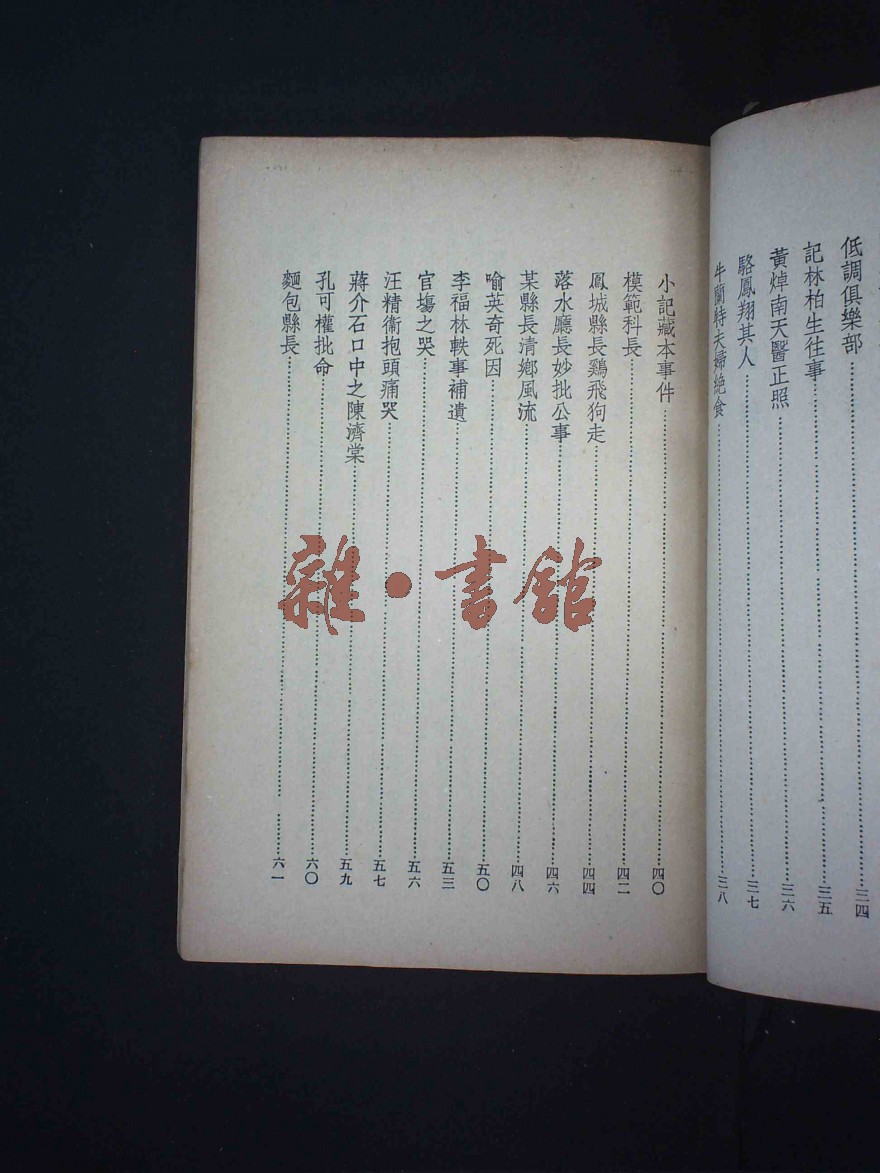 低調俱樂部……三四
記林柏生往事……三五
黃焯南天醫正照……三六
駱鳳翔其人……三七
牛蘭特夫婦絶食……三八
小記藏本事件……四〇
模範科長……四二
鳳城縣長鷄飛狗走……四四
落水廳長妙批公事……四六
某縣長清鄉風流……四八
喻英奇死因……五〇
李福林軼事補遺……五三
官塲之哭……五六
汪精衞抱頭痛哭……五七
蔣介石口中之陳濟棠……五九
孔可權批命……六〇
麵包縣長……六一
雜·書館